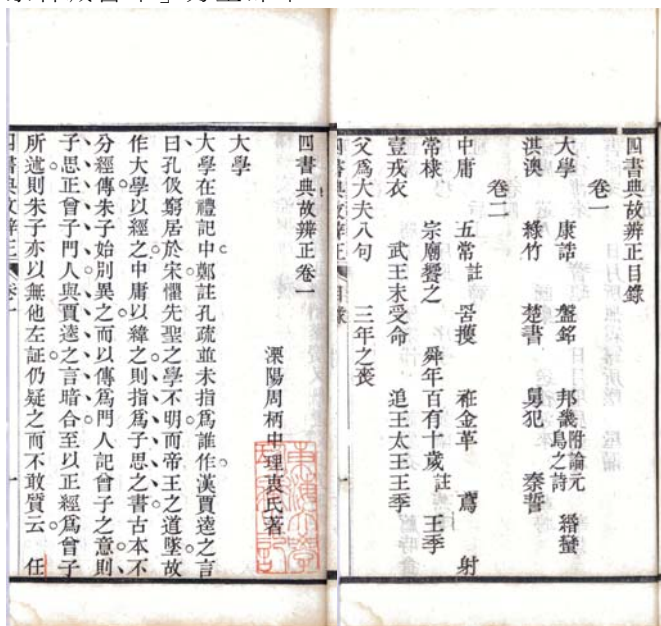 四書典故辨正目錄
卷一
大學 康誥 盤銘 邦畿附論元鳥之詩 緡蠻
淇澳 綠竹 楚書 舅犯 秦誓
卷二
中庸 五常註 罟擭 衽金革 鳶 射
常棣 宗廟饗之 舜年百有十歲註 王季
壹戎衣 武王末受命 追王太王王季
父爲大夫八句 三年之喪
四書典故辨正 目錄 一
四書典故辨正卷一
溧陽周柄中理衷氏著
大學
大學在禮記中鄭註孔疏並未指爲誰作漢賈逵之言
曰孔伋窮居於宋懼先聖之學不明而帝王之道墜故
作大學以經之中庸以緯之則指爲子思之書古本不
分經傳朱子始別異之而以傳爲門人記曾子之意則
子思正曾子門人與賈逵之言暗合至以正經爲曾子
所述則朱子亦以無他左証仍疑之而不敢質云 任
四書典故辨正 卷一 一